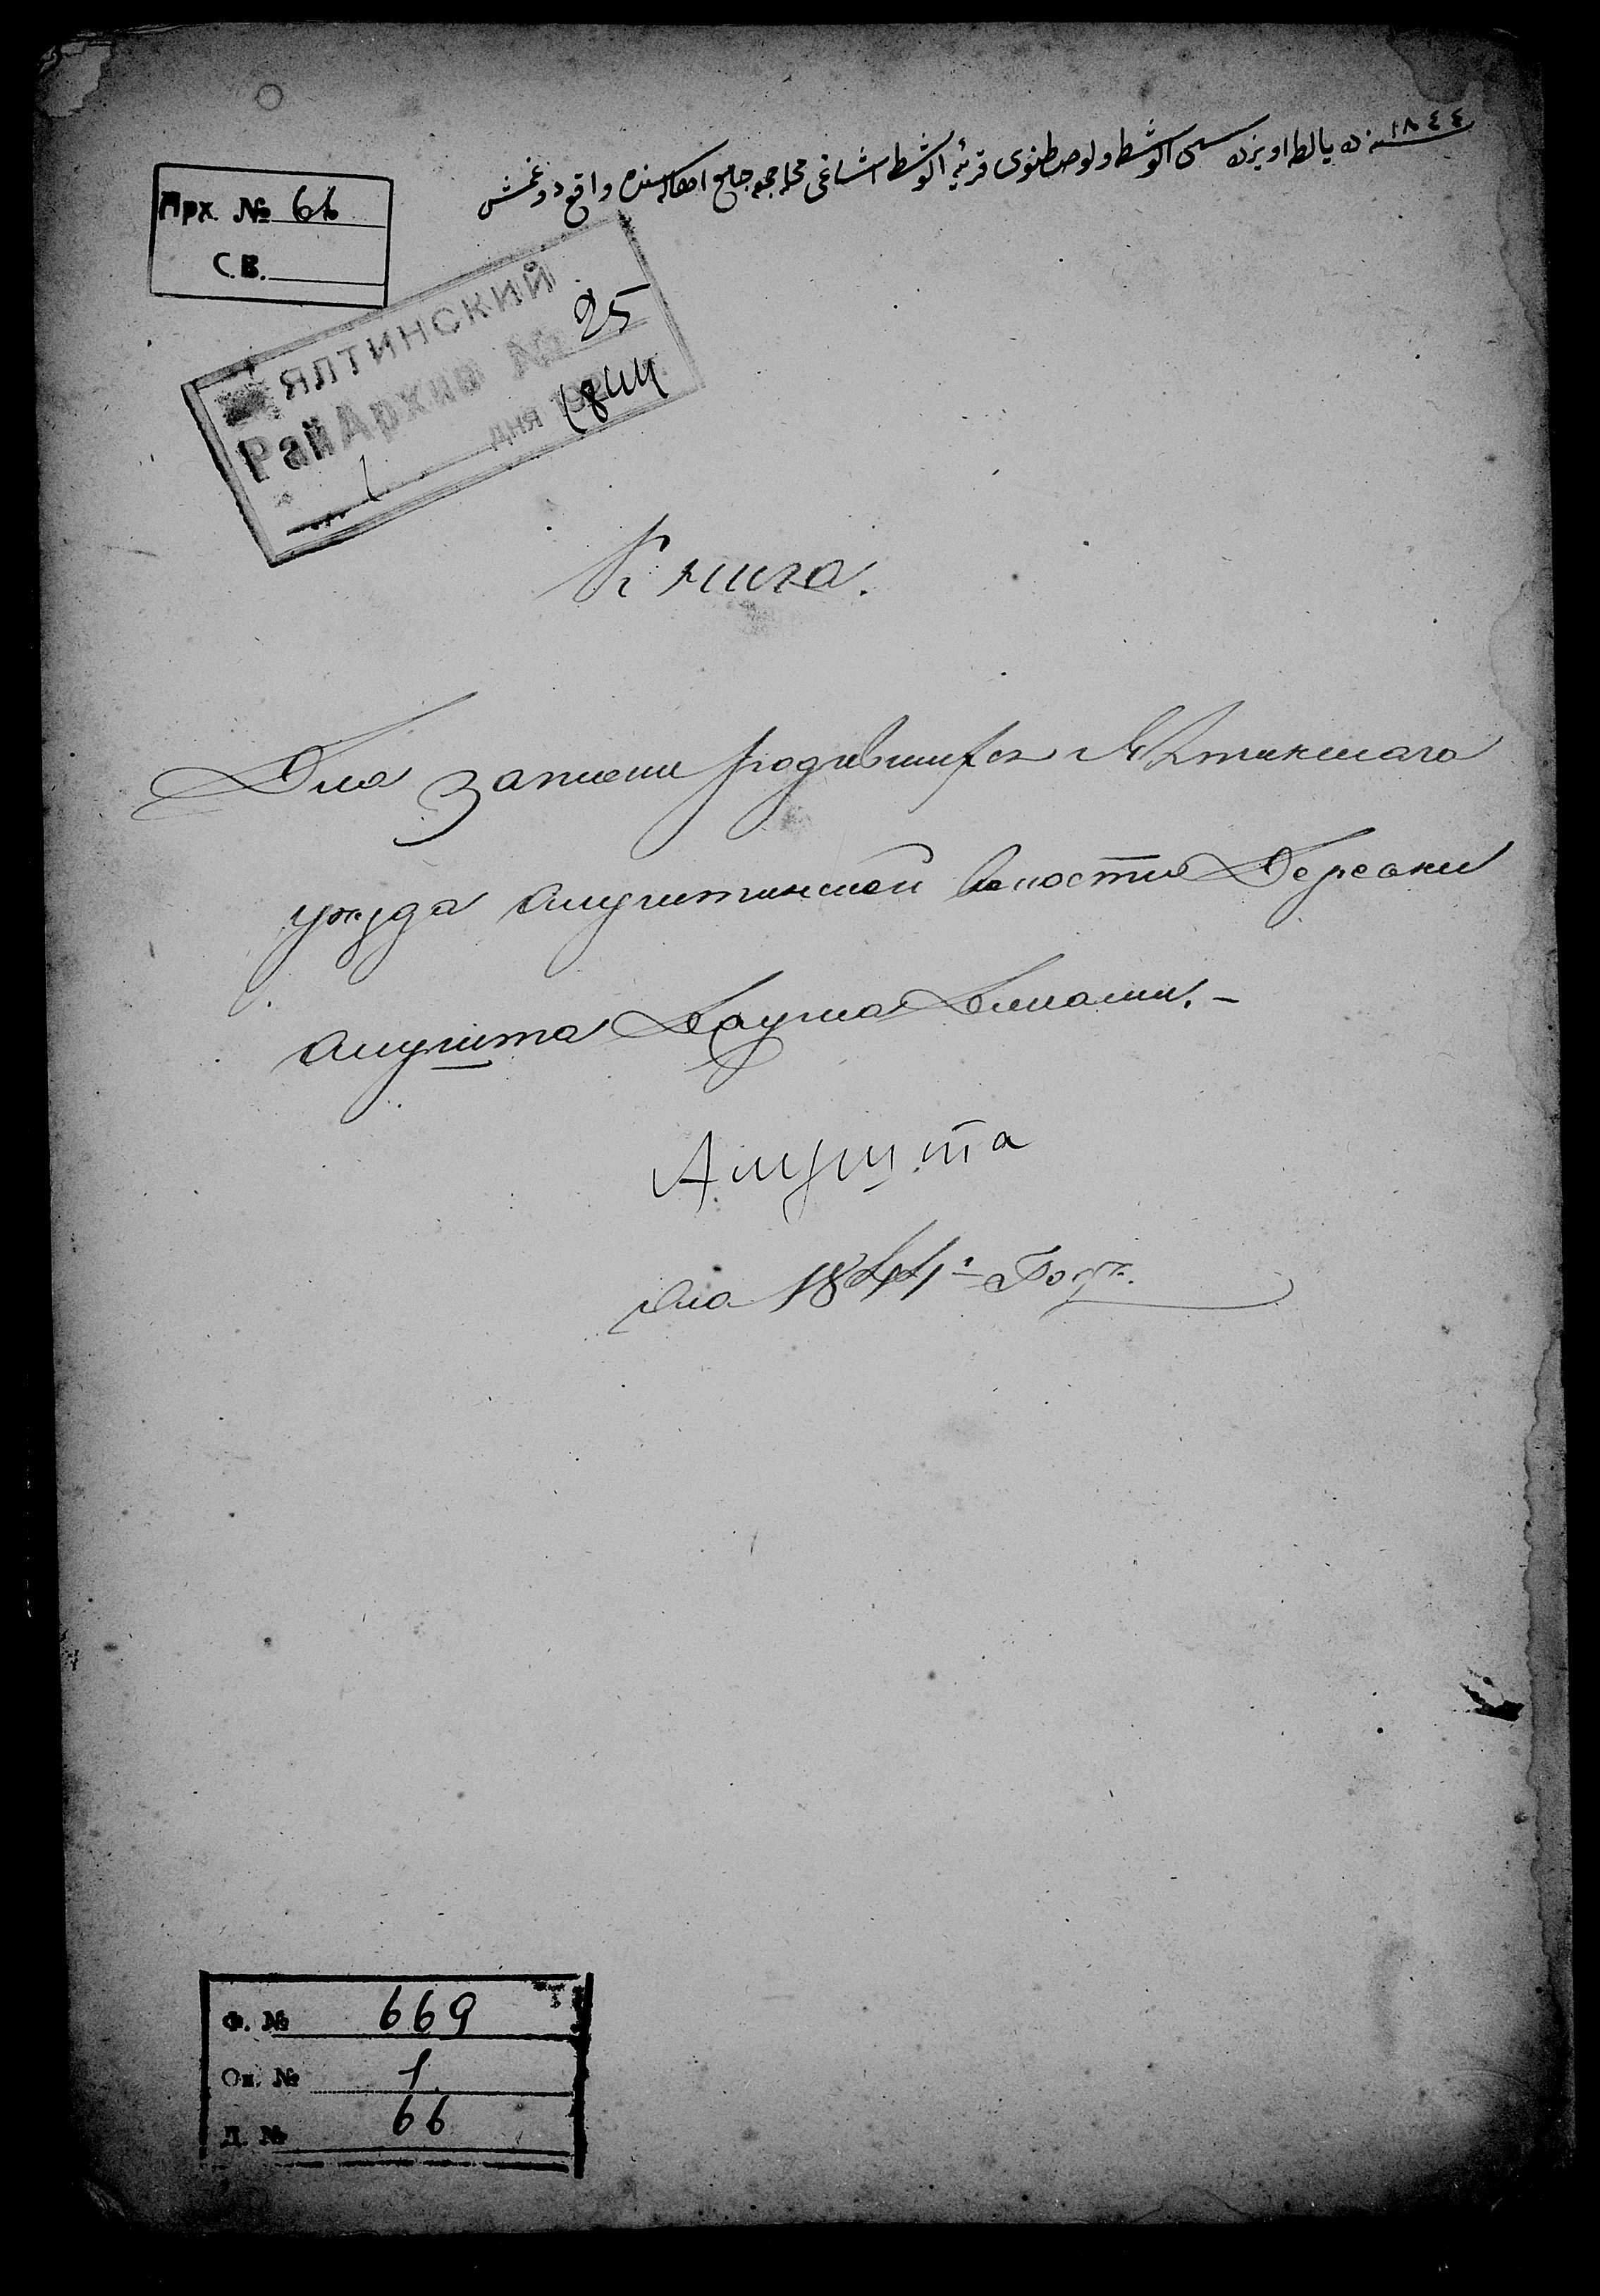 ١٨٤٤
سنه ده يالطه اويزده سی الوشطه ولوصطنوی قريۀ الوشطه اشاغی محله جمعه جامع واقع دوغمش
Арх. № 66
С.В.
ЯЛТИНСКИЙ
РайАрхив № 25
дня 1844
Книга.
Для записи родившихся Ялтинскаго
уезда Алуштинской волости Деревни
Алушта
Алушта
Для 1844 г. Года
Ф. № 669
Оп. № 1
Д. № 66